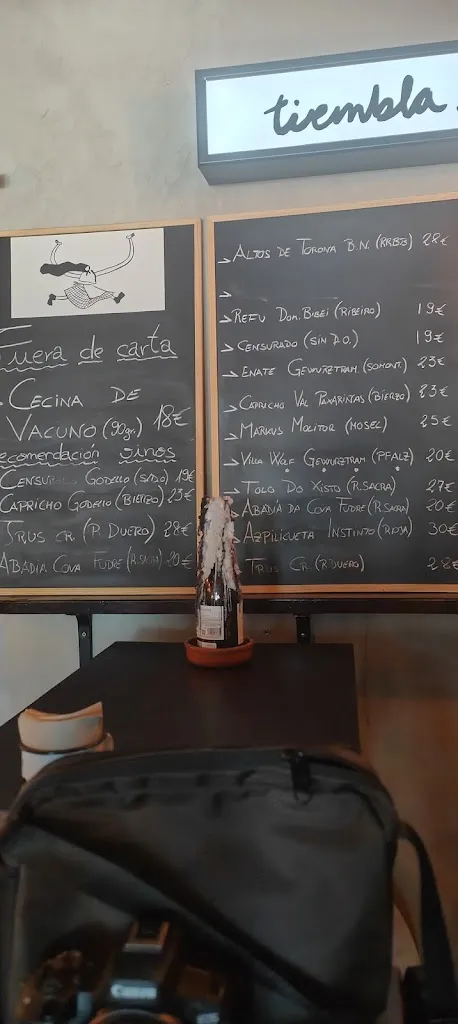 tirembla
Fuera de carta
CECINA DE
VACUNO (90gr.) 18€
recomendación vinos
CENSURADO GODELLO (S/DO) 19€
CAPRICHO GODELLO (BIERZO) 23€
TRUS CR. (R. DUERO) 28€
ABADIA COVA FUDRE (R. SACRA) 20€
ALTOS DE TORONA B.N. (RRBB) 28€
REFU DOM. BIBEI (RIBEIRO) 19€
CENSURADO (SIN D.O.) 19€
ENATE GEWURZTRAM (SOMONT.) 23€
CAPRICHO VAL PAXARIÑAS (BIERZO) 23€
MARKUS MOLITOR (MOSEL) 25€
VILLA WOLF GEWURZTRAM (PFALZ) 20€
TOLO DO XISTO (R. SACRA) 27€
ABADIA DA COVA FUDRE (R. SACRA) 20€
AZPILICUETA INSTINTO (RIOJA) 30€
TRUS CR. (R. DUERO) 28€
Canon